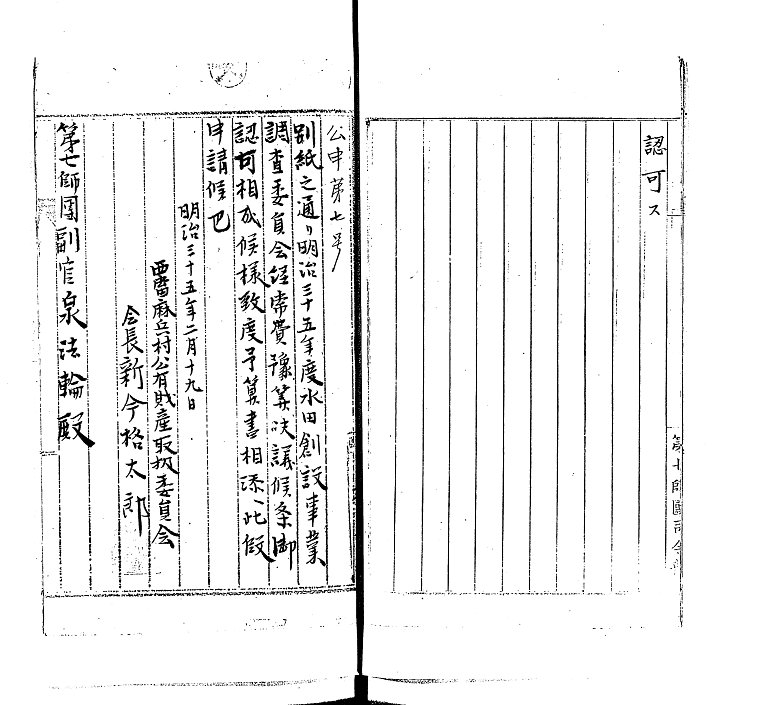 認可ス
第七師團司令部
公申第七号
別紙之通リ明治三十五年度水田創設事業
調査委員会経常費豫算決議候条御
認可相成候様致度予算書相添ヘ此段
申請候也
明治三十五年二月十九日
西當麻兵村公有財産取扱委員会
会長新今格太郎
第七師團副官泉法輪殿